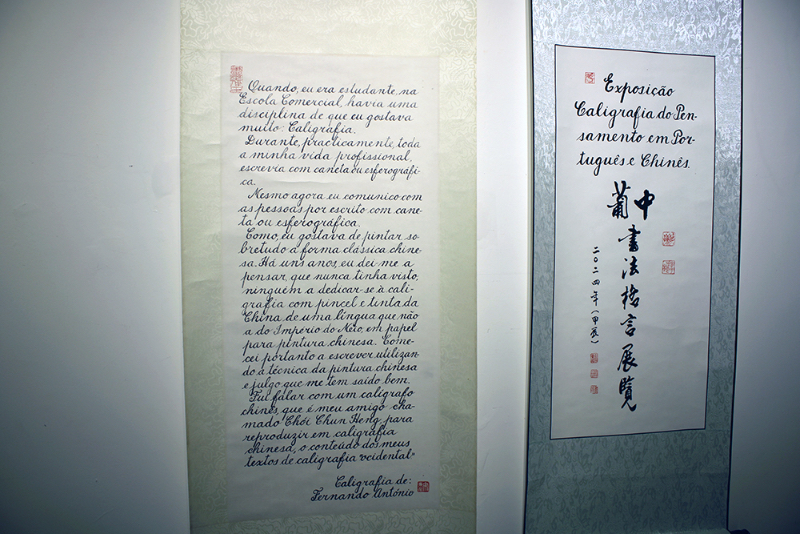 Quando, eu era estudante, na
Escola Comercial, havia uma
disciplina de que eu gostava
muito: Caligrafia.
Durante, practicamente, toda
a minha vida profissional,
escrevia com caneta ou esferográfi-
ca.
Mesmo agora eu comunico com
as pessoas por escrito com cane-
ta ou esferográfica.
Como, eu gostava de pintar so-
bretudo a forma clássica chine-
sa. Há uns anos, eu dei me a
pensar, que nunca tinha visto,
ninguém a dedicar-se à cali-
grafia com pincel e tinta da
China de uma língua que não
a do Império do Meio, em papel
para pintura chinesa. Come-
cei portanto a escrever utilizan-
do a técnica da pintura chinesa
e julgo que me tem saído bem.
Fui falar com um calígrafo
chinês, que é meu amigo cha-
mado Chói Chun Heng para
reproduzir em caligrafia
chinesa, o conteúdo dos meus
textos de caligrafia "ocidental"
Caligrafia de:
Fernando António
Exposição
Caligrafia do Pen-
samento em Por-
tuguês e Chinês.
中
葡
書法格言展覽
二〇二四年(甲辰)